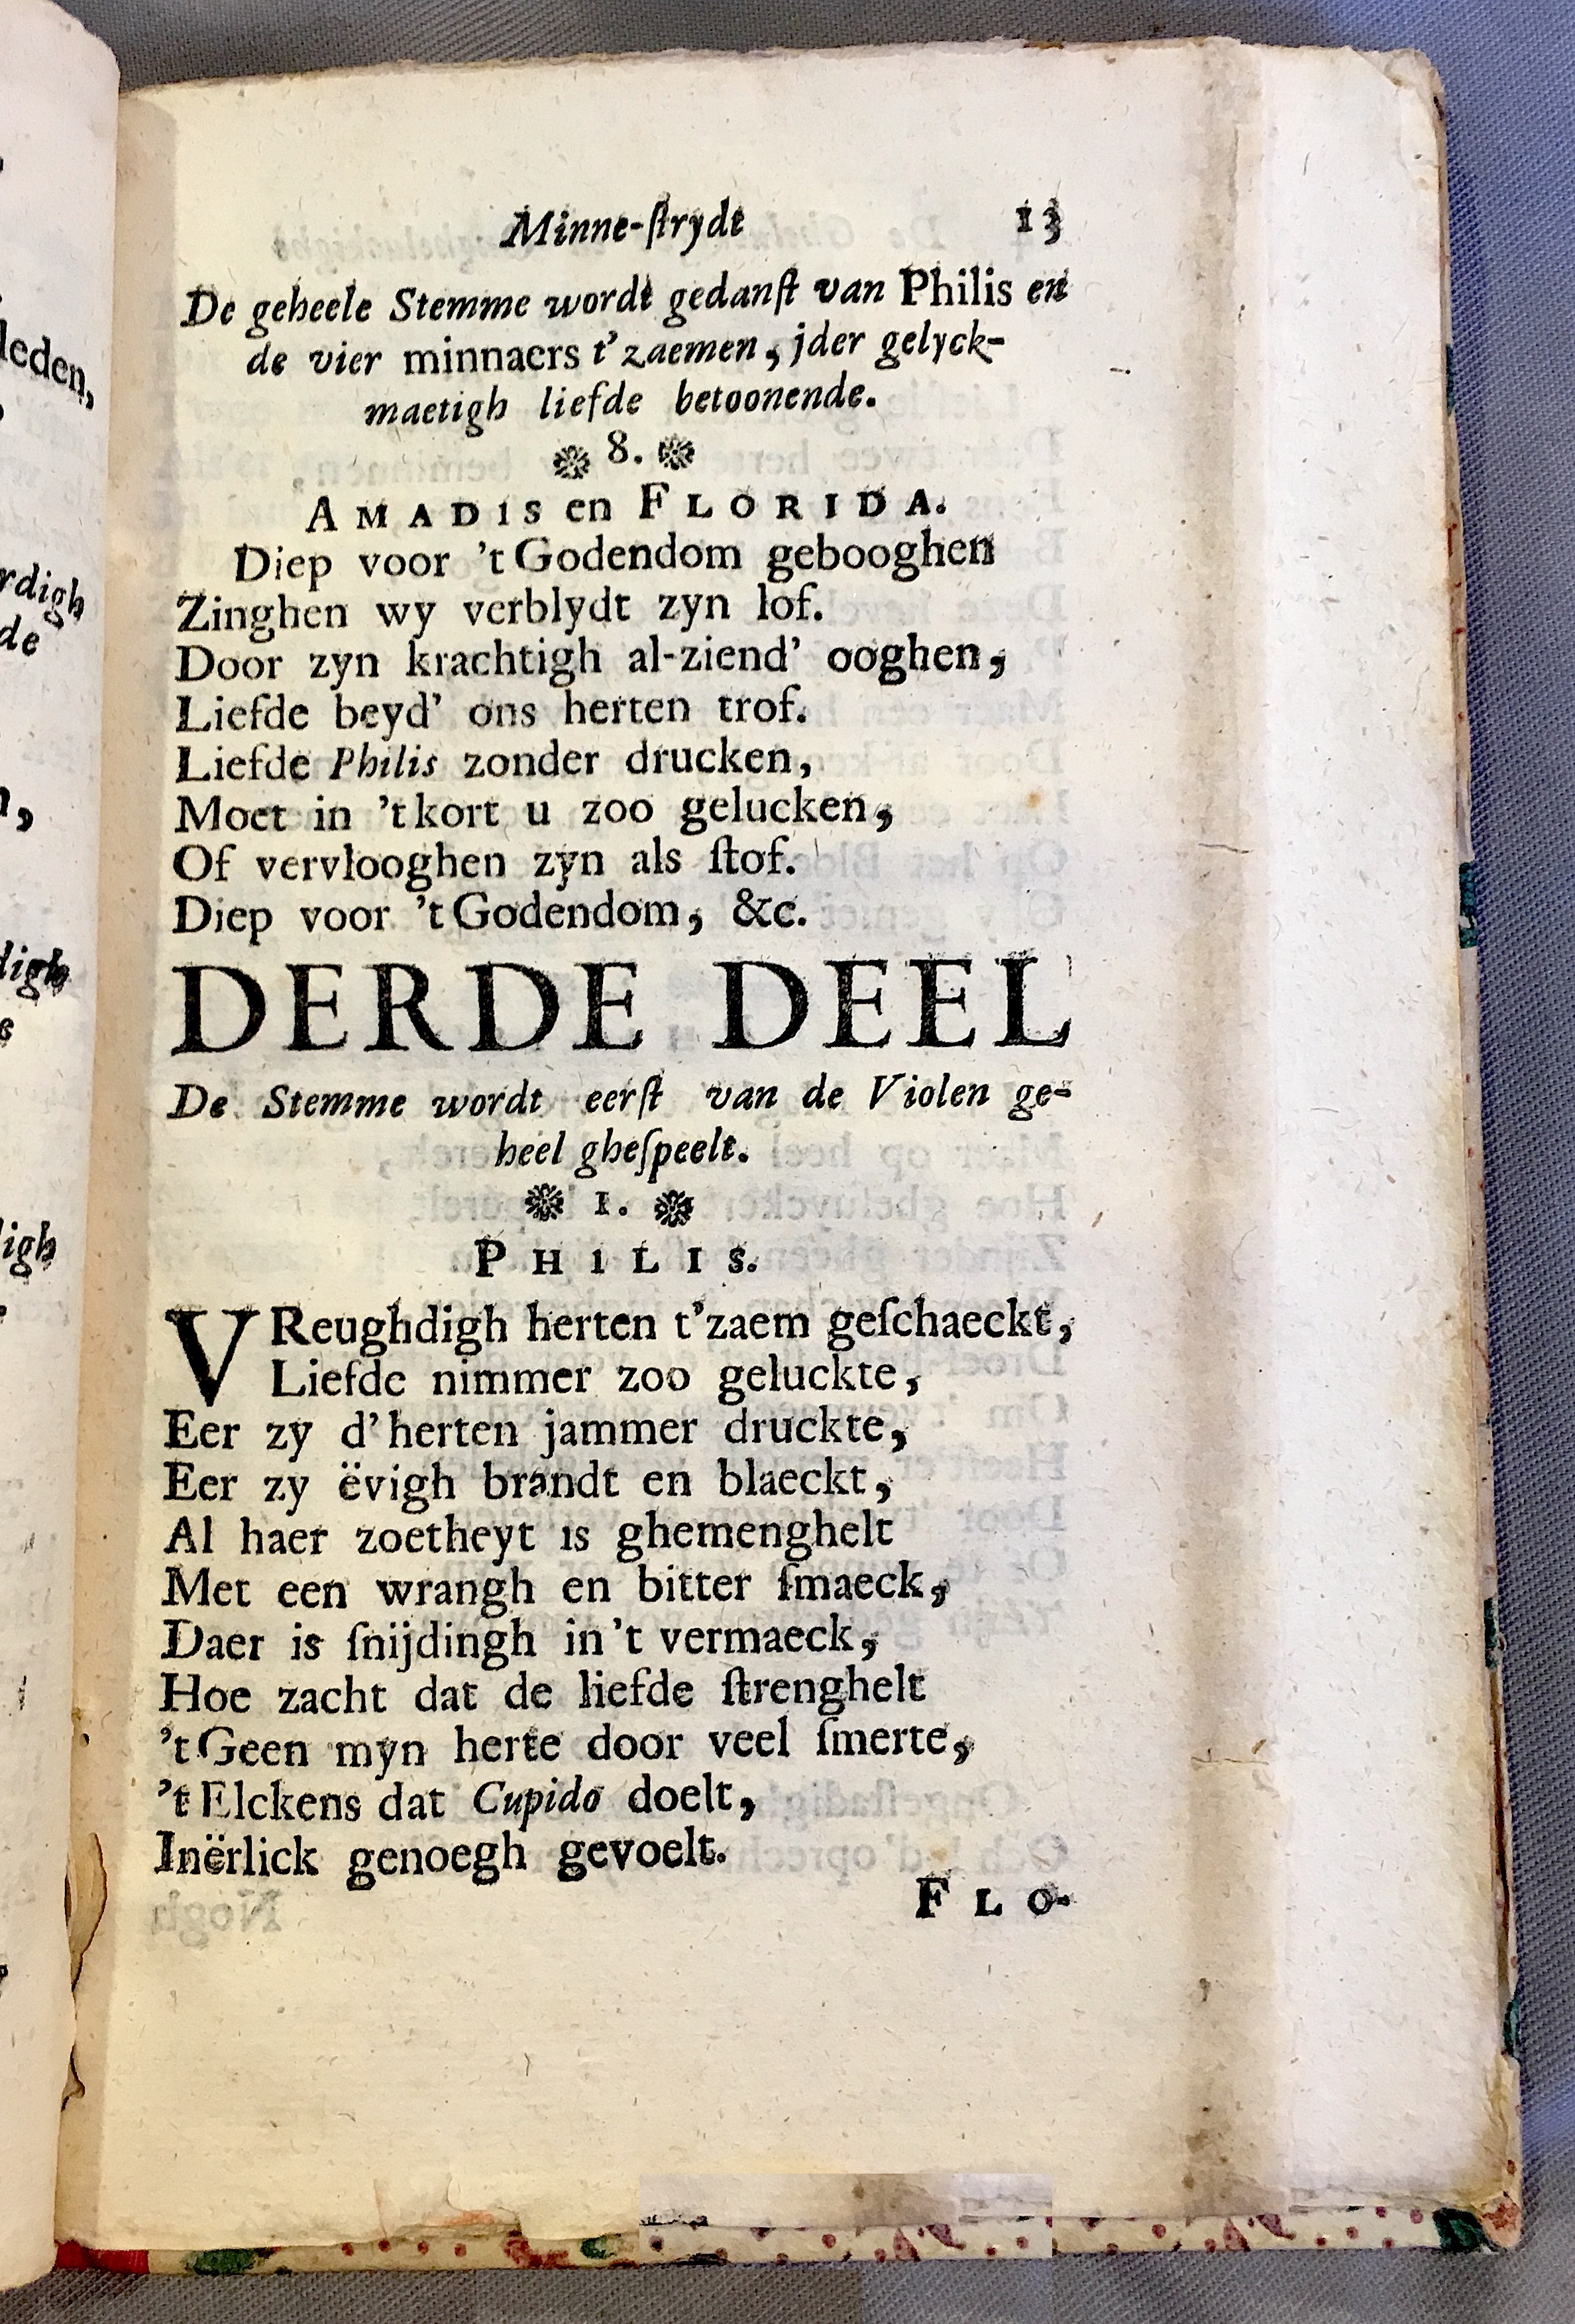 Minne-ſtrydt 13
De geheele Stemme wordt gedanſt van Philis en
de vier minnaers t'zaemen, jder gelyck-
maetigh liefde betoonende.
8.
AMADIS en FLORIDA.
Diep voor 't Godendom gebooghen
Zinghen wy verblydt zyn lof.
Door zyn krachtigh al-ziend' ooghen,
Liefde beyd' ons herten trof.
Liefde Philis zonder drucken,
Moet in 't kort u zoo gelucken,
Of vervlooghen zyn als ſtof.
Diep voor 't Godendom, &c.
DERDE DEEL
De Stemme wordt eerſt van de Violen ge-
heel gheſpeelt.
1.
PHILIS.
VReughdigh herten t'zaem geſchaeckt,
Liefde nimmer zoo geluckte,
Eer zy d'herten jammer druckte,
Eer zy ëvigh brandt en blaeckt,
Al haer zoetheyt is ghemenghelt
Met een wrangh en bitter ſmaeck,
Daer is ſnijdingh in 't vermaeck,
Hoe zacht dat de liefde ſtrenghelt
't Geen myn herte door veel ſmerte,
't Elckens dat Cupido doelt,
Inërlick genoegh gevoelt.
FLO-
leden,
rdigh
de
n,
digh
e
digh